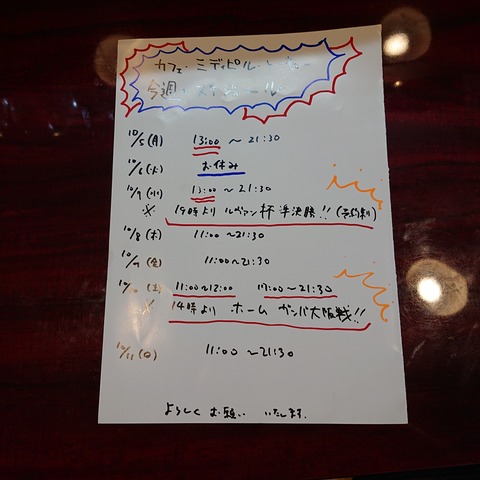 カフェ・ミディピル
今週 スケジュール
10/5(月) 13:00 〜 21:30
10/6(火) お休み
10/7(水) 13:00 〜 21:30
※ 19時より ルヴァン杯準決勝!! (予約制)
10/8(木) 11:00〜21:30
10/9(金) 11:00〜21:30
(土) 11:00〜12:00 17:00〜21:30
※ 14時より ホーム ガンバ大阪戦!!
10/11(日) 11:00 〜21:30
よろしく お願い いたします.